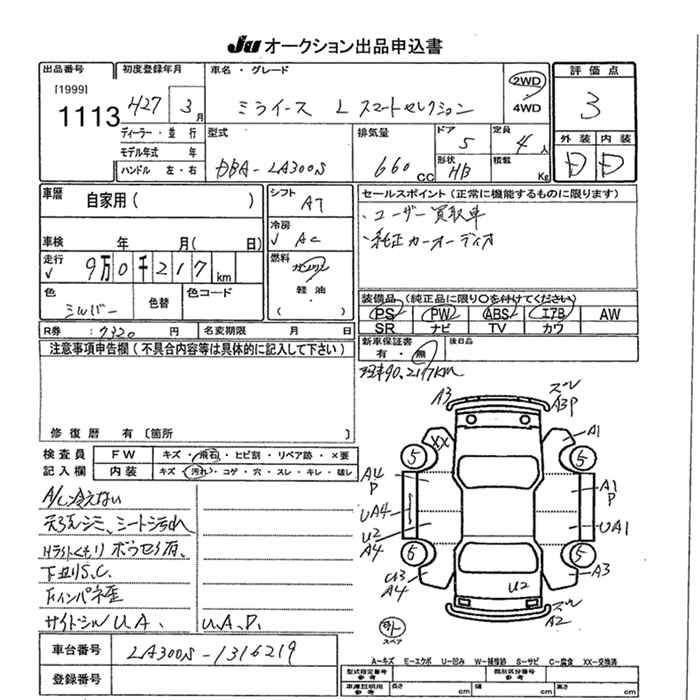 JU オークション出品申込書
出品番号 [1999] 1113
初度登録年月 H27 年 3 月
ディーラー・並行
モデル年式 年
ハンドル 左・右
車名・グレード
ミライース L スマートセレクション
2WD
4WD
型式 DBA-LA300S
排気量 660 CC
ドア 5
定員 4 人
形状 HB
積載 Kg
評価点 3
外装 内装
D D
車歴 自家用( )
車検 年 月( 日)
走行 √ 9万0千217 km
色 シルバー
色替
色コード
シフト AT
冷房 √ AC
燃料 ガソリン
軽油
( )
セールスポイント(正常に機能するものに限ります)
・ユーザー買取車
・純正カーオーディオ
装備品(純正品に限り○を付けてください)
PS PW ABS エアB AW
SR ナビ TV カワ
R券 : 7320 円
名変期限 月 日
新車保証書 有・無
後日品
注意事項申告欄(不具合内容等は具体的に記入して下さい)
修復歴 有〔箇所
検査員 記入欄
FW キズ・飛石・ヒビ割・リペア跡・×要
内装 キズ・汚れ・コゲ・穴・スレ・キレ・破レ
現車90,217km
A/C冷えない
天張シミ、シート汚れ
Hライトくもり ボウセイ有、
下廻りS.C.
Fインパネ歪
サイドシルUA. U.A.P.
A3
スレ
A3P
XX
A1
5
5
A4
P
A1
P
UA4
UA1
U2
A4
5
5
U3
A4
A3
U2
スレ
A2
外
スペア
A-キズ E-エクボ U-凹み W-補修跡 S-サビ C-腐食 XX-交換済
車台番号 LA300S-1316219
登録番号
型式指定番号 参考
類別区分番号 参考
車庫証明用 参考
長さ cm
幅 cm
高さ cm